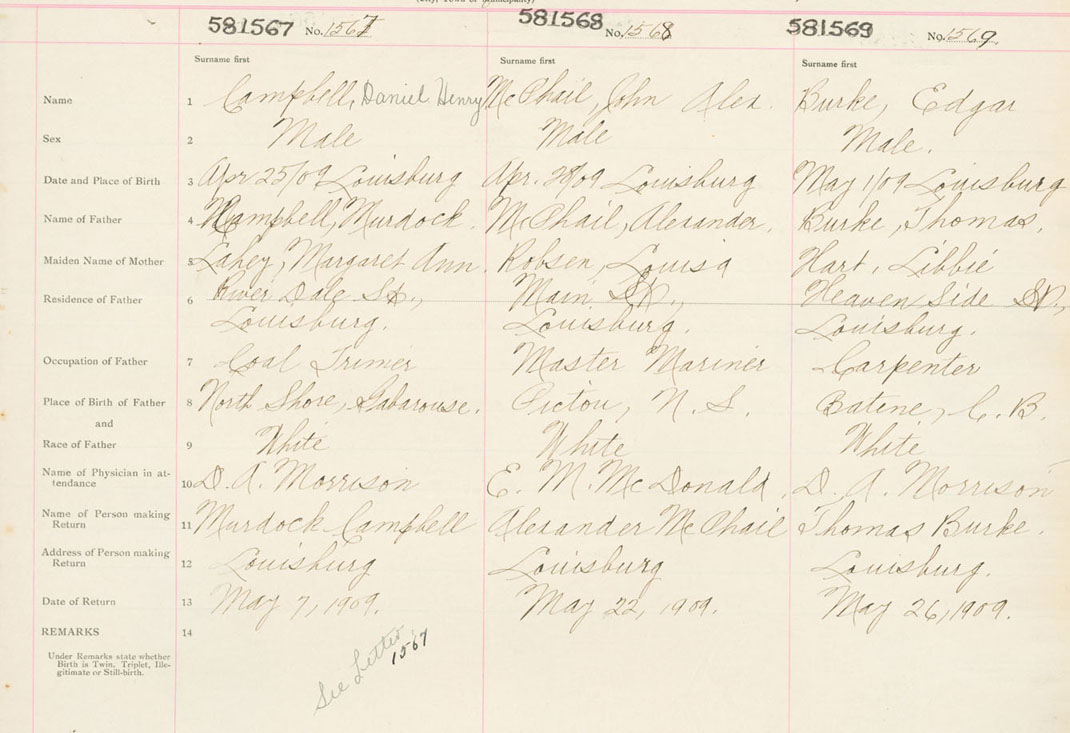 (City, Town or Municipality)
581567 No. 1567 581568 No. 1568 581569 No. 1569
Surname first Surname first Surname first
Name 1 Campbell, Daniel Henry McPhail, John Alex. Burke, Edgar
Sex 2 Male Male Male.
Date and Place of Birth 3 Apr 25/09 Louisburg Apr. 28/09 Louisburg May 1/09 Louisburg
Name of Father 4 Campbell, Murdock. McPhail, Alexander. Burke, Thomas.
Maiden Name of Mother 5 Lahey, Margaret Ann. Robsen, Louisa Hart, Libbie
Residence of Father 6 River Dale St., Main St., Heaven Side St.,
Louisburg. Louisburg. Louisburg.
Occupation of Father 7 Coal Trimer Master Mariner Carpenter
Place of Birth of Father 8 North Shore, Gabarouse. Pictou, N. S. Batene, C. B.
and
Race of Father 9 White White White
Name of Physician in at-
tendance 10 D. A. Morrison E. M. McDonald. D. A. Morrison
Name of Person making
Return 11 Murdock Campbell Alexander McPhail Thomas Burke.
Address of Person making
Return 12 Louisburg Louisburg Louisburg.
Date of Return 13 May 7, 1909. May 22, 1909. May 26, 1909.
REMARKS 14
Under Remarks state whether
Birth is Twin, Triplet, Ille-
gitimate or Still-birth.
See Letter,
1567